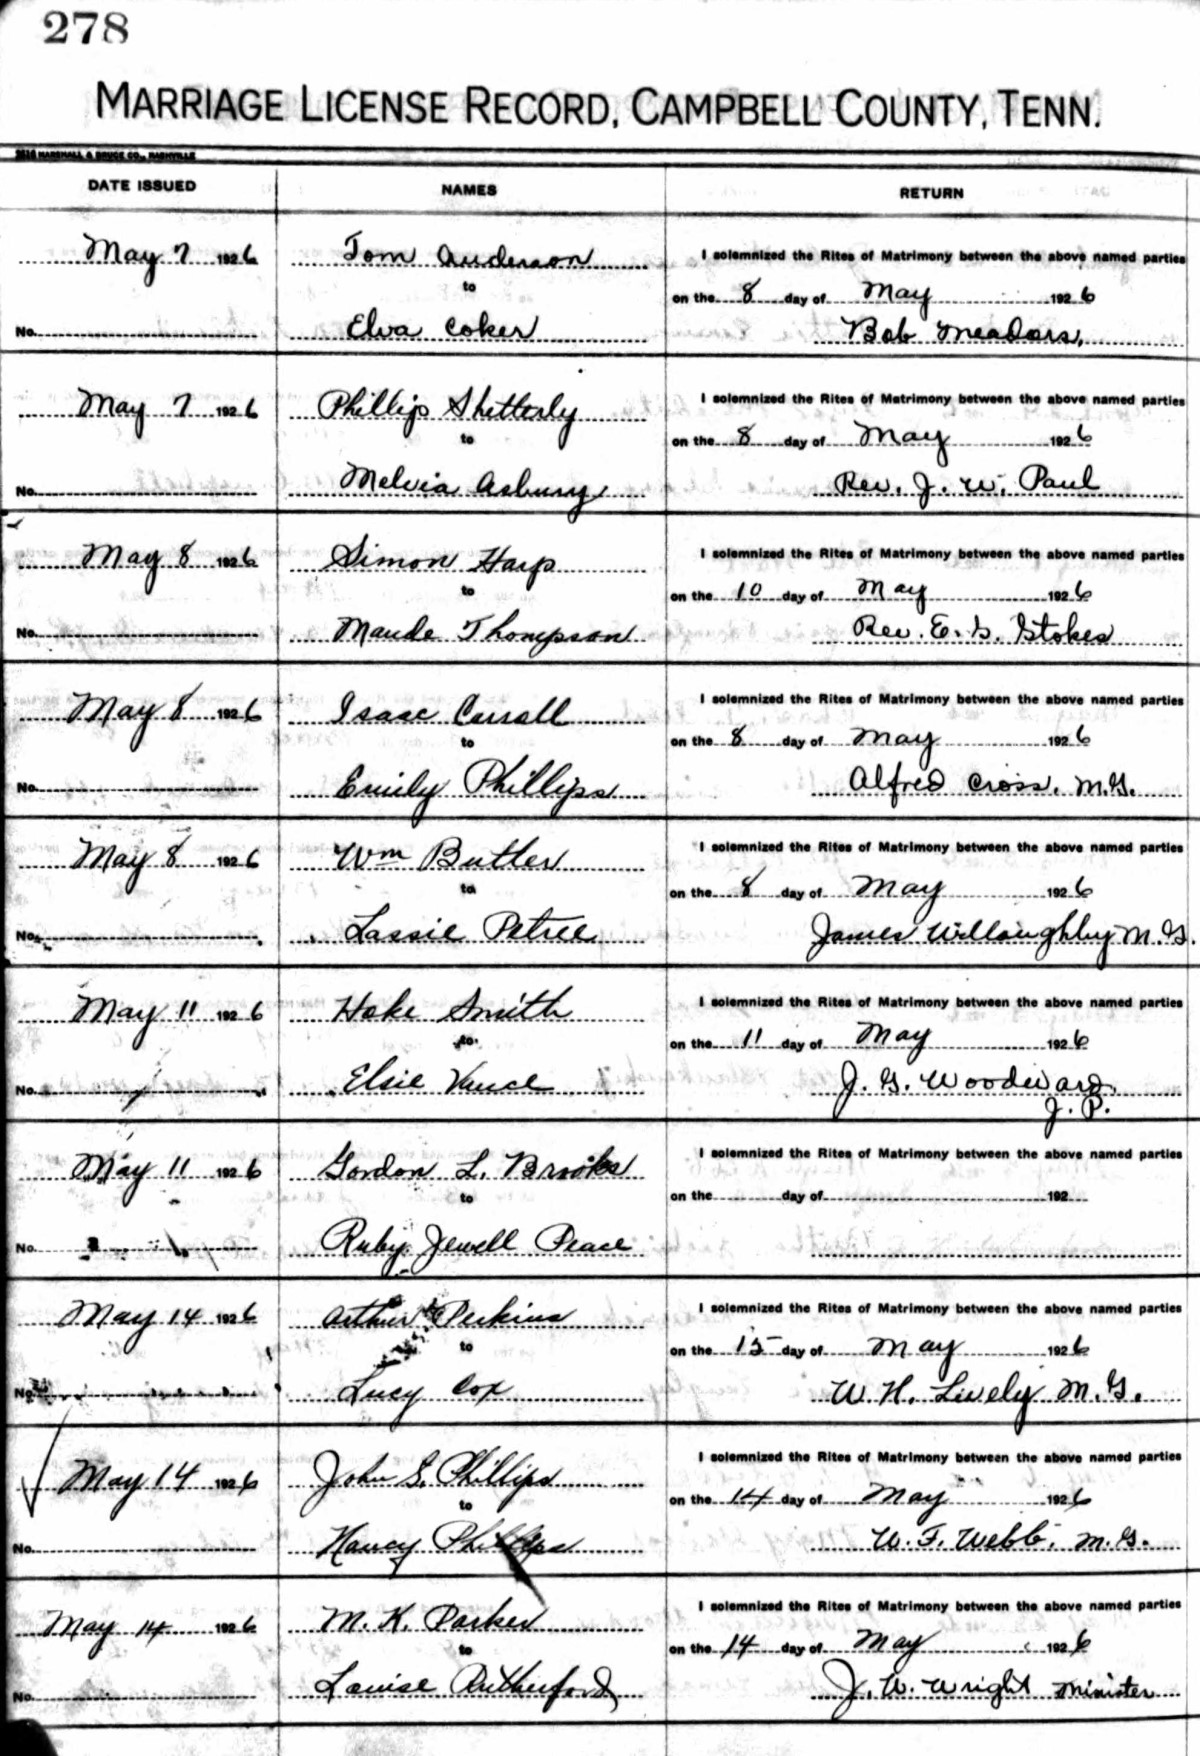 278
MARRIAGE LICENSE RECORD, CAMPBELL COUNTY, TENN.
MARSHALL & BRUCE CO., NASHVILLE
DATE ISSUED NAMES RETURN
May 7 1926 Tom Anderson I solemnized the Rites of Matrimony between the above named parties
to on the 8 day of May 1926
No. Elva Coker Bob Meadors,
May 7 1926 Phillip Shitterly I solemnized the Rites of Matrimony between the above named parties
to on the 8 day of May 1926
No. Melvia Asbury Rev. J. W. Paul
May 8 1926 Simon Harp I solemnized the Rites of Matrimony between the above named parties
to on the 10 day of May 1926
No. Maude Thompson Rev. E. G. Stokes
May 8 1926 Isaac Carroll I solemnized the Rites of Matrimony between the above named parties
to on the 8 day of May 1926
No. Emily Phillips Alfred Cross. M.G.
May 8 1926 Wm Butler I solemnized the Rites of Matrimony between the above named parties
to on the 8 day of May 1926
No. Lassie Petree James Willoughby M.G.
May 11 1926 Hoke Smith I solemnized the Rites of Matrimony between the above named parties
to on the 11 day of May 1926
No. Elsie Vance J. G. Woodward
J. P.
May 11 1926 Gordon L. Brooks I solemnized the Rites of Matrimony between the above named parties
to on the day of 192
No. Ruby Jewell Peace
May 14 1926 Arthur Perkins I solemnized the Rites of Matrimony between the above named parties
to on the 15 day of May 1926
No. Lucy Cox W. H. Lively M.G.
May 14 1926 John G. Phillips I solemnized the Rites of Matrimony between the above named parties
to on the 14 day of May 1926
No. Nancy Phillips W. F. Webb. M.G.
May 14 1926 M. K. Parker I solemnized the Rites of Matrimony between the above named parties
to on the 14 day of May 1926
No. Louise Rutherford J. W. Wright Minister